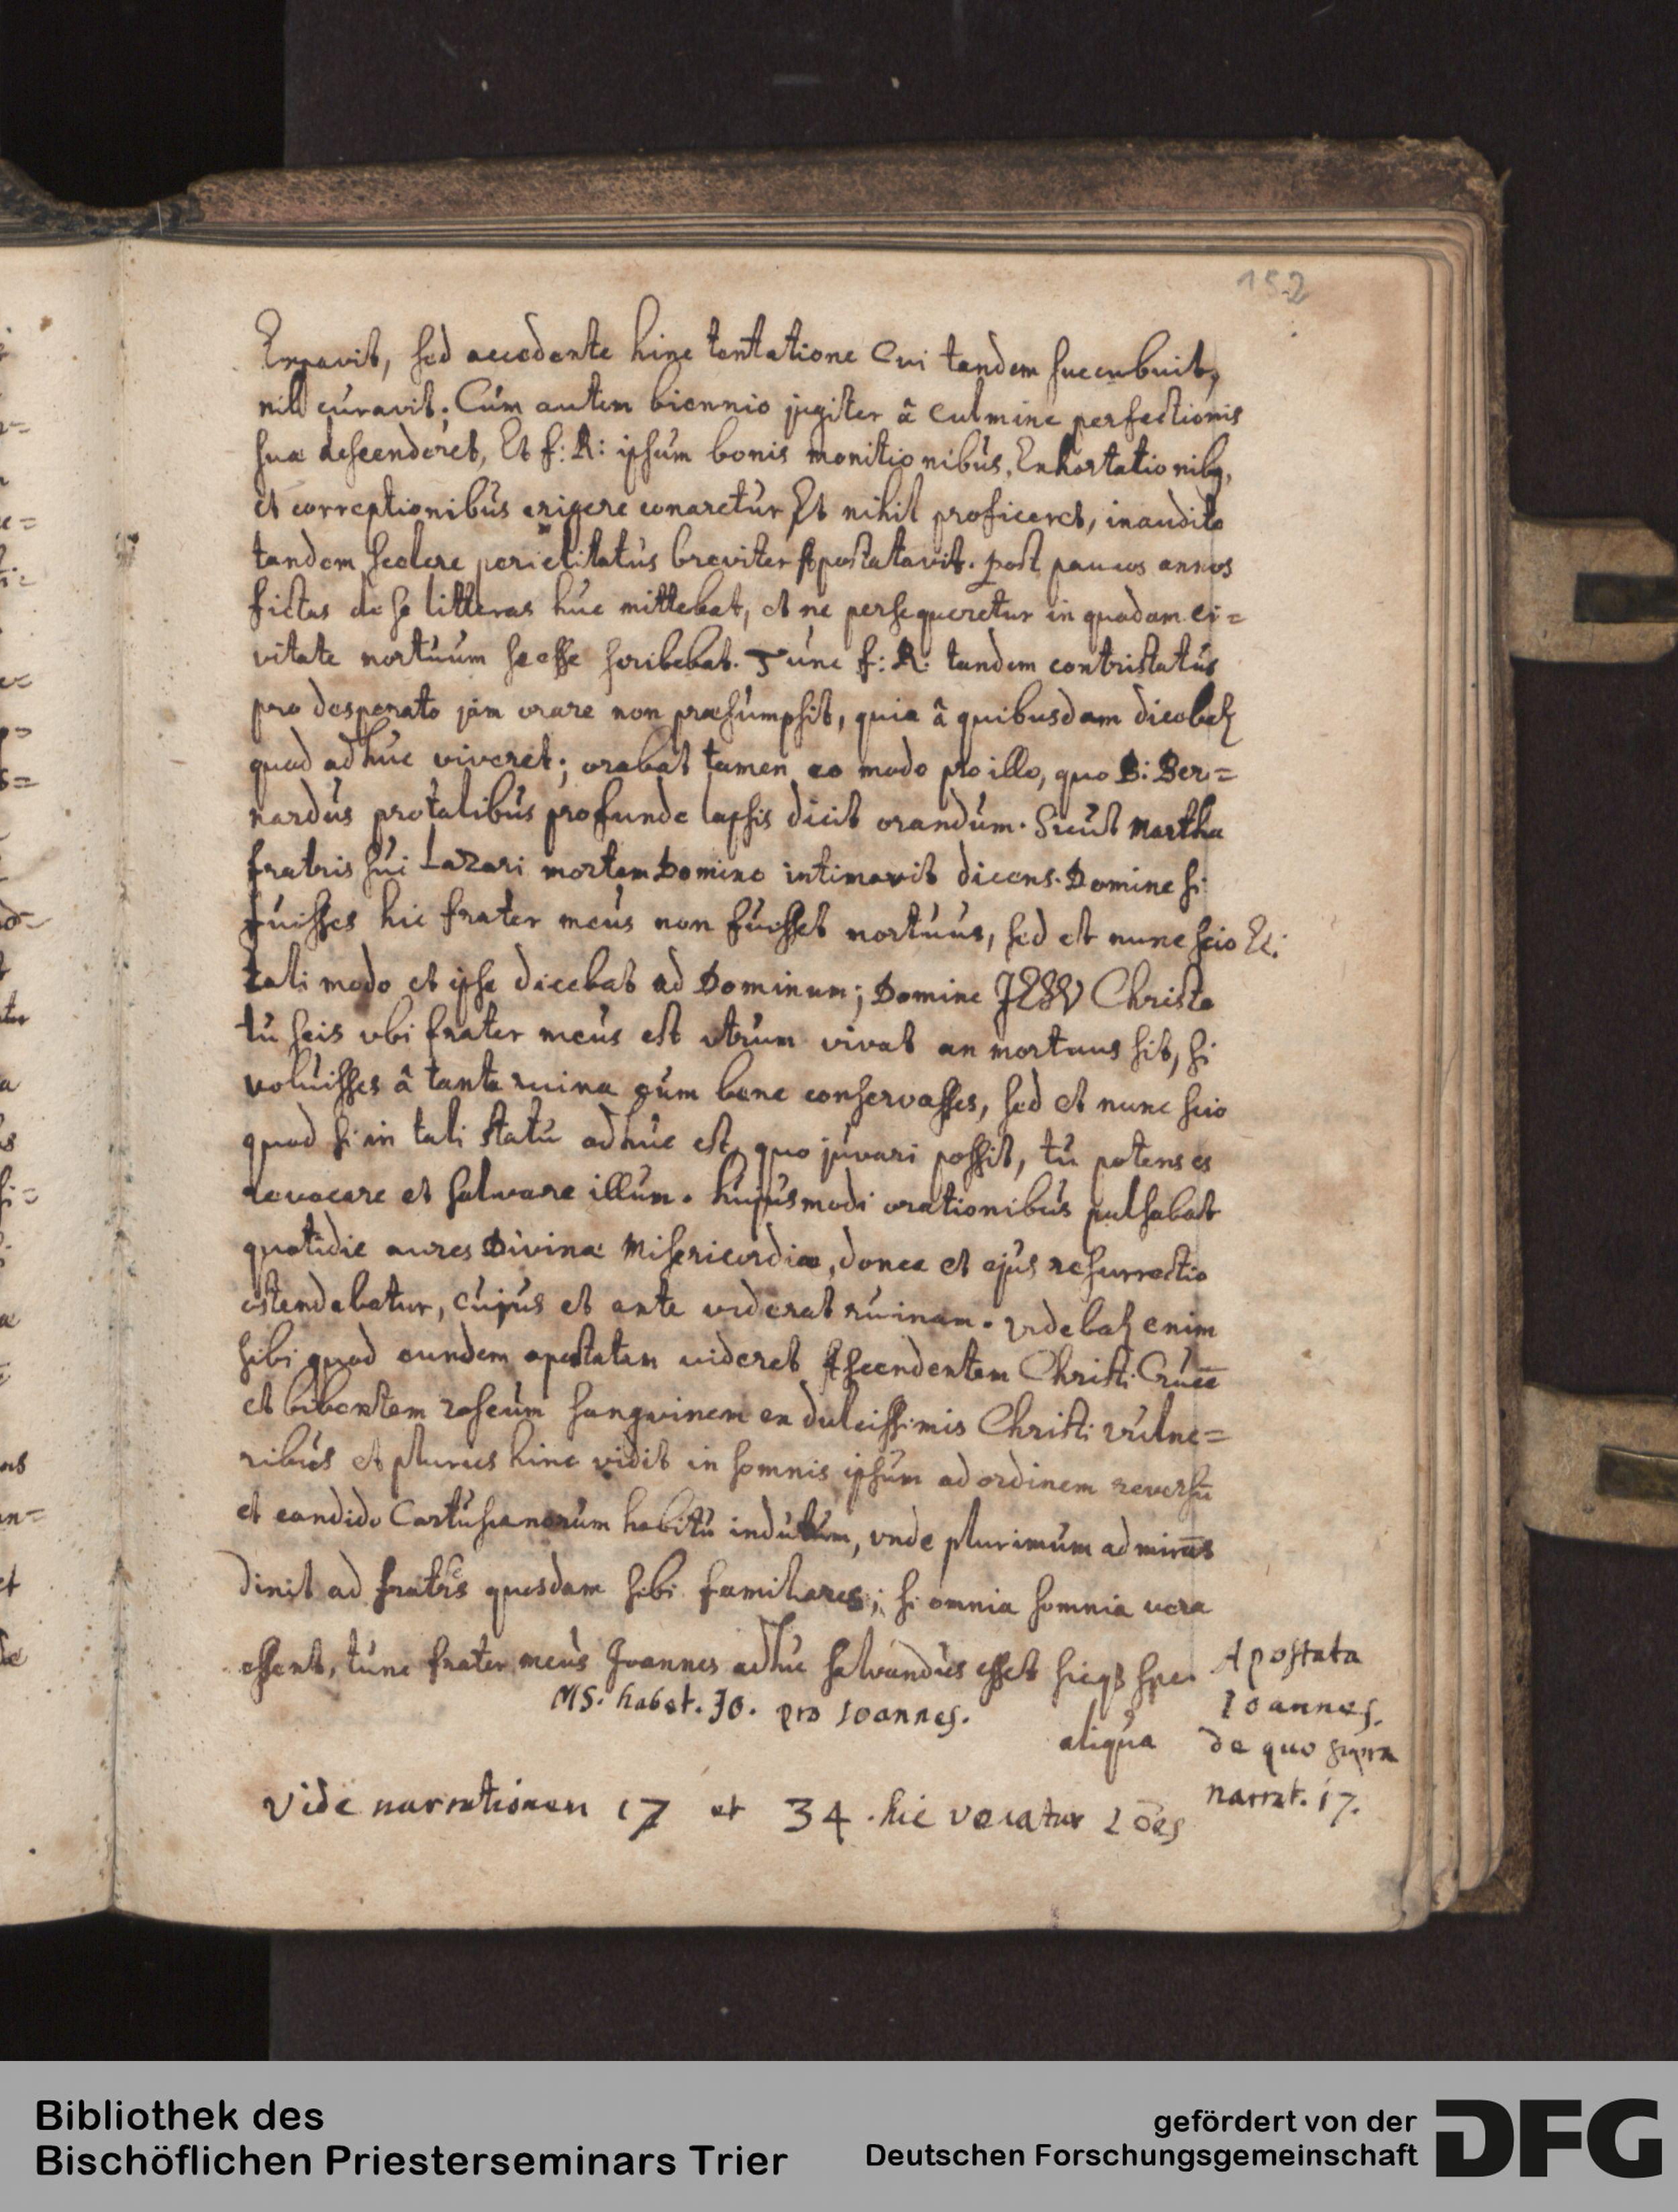 152
Expavit, sed accedente hinc tentatione Cui tandem succubuit,
nil curavit. Cum autem biennio jugiter â culmine perfectionis
suæ descenderet, Et f: R: ipsum bonis monitionibus, Exhortationibq,
et correptionibus erigere conaretur Et nihil proficeret, inaudito
tandem scelere periclitatus breviter Apostatavit. post paucos annos
fictas de se litteras huc mittebat, et ne persequeretur in quadam ci=
vitate mortuum se esse scribebat. Tunc f: R: tandem contristatus
pro desperato jam orare non præsumpsit, quia â quibusdam dicebatz
quod adhuc viveret; orabat tamen eo modo pro illo, quo B: Ber=
nardus pro talibus profunde lapsis dicit orandum. Sicut Martha
fratris sui Lazari mortem Domino intimavit dicens. Domine si
fuisses hic frater meus non fuisset mortuus, sed et nunc scio Ec:
tali modo et ipse dicebat ad Dominum; Domine JESV Christe
tu scis vbi frater meus est vtrum vivat an mortuus sit, si
voluisses â tanta ruina eum bene conservasses, sed et nunc scio
quod si in tali statu adhuc est, quo juvari possit, tu potens es
revocare et salvare illum. hujusmodi orationibus pulsabat
quotidie aures Divinæ Misericordiæ, donec et ejus resurrectio
ostendebatur, cujus et ante viderat ruinam. videbatz enim
sibi quod eundem apostatam videret Ascendentem Christi Crucē
et bibentem roseum sangvinem ex dulcissimis Christi vulne=
ribus et plures hinc vidit in somnis ipsum ad ordinem reversū
et candido Cartusianorum habitu indutum, vnde plurimum admirās
dixit ad fratres quosdam sibi familiares; si omnia somnia vera
essent, tunc frater meus Joannes adhuc salvandus esset sicqз spes
aliqua
MS. habet. Jo. pro Ioannes.
Apostata
Ioannes.
de quo supra
narrat. 17.
Vide narrationem 17 et 34. hic vocatur Iōes
Bibliothek des
Bischöflichen Priesterseminars Trier
gefördert von der
Deutschen Forschungsgemeinschaft
DFG